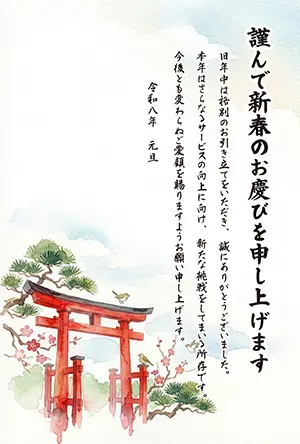 謹んで新春のお慶びを申し上げます
旧年中は格別のお引き立てをいただき、誠にありがとうございました。
本年はさらなるサービスの向上に向け、新たな挑戦をしてまいる所存です。
今後とも変わらぬご愛顧を賜りますようお願い申し上げます。
令和八年　元旦